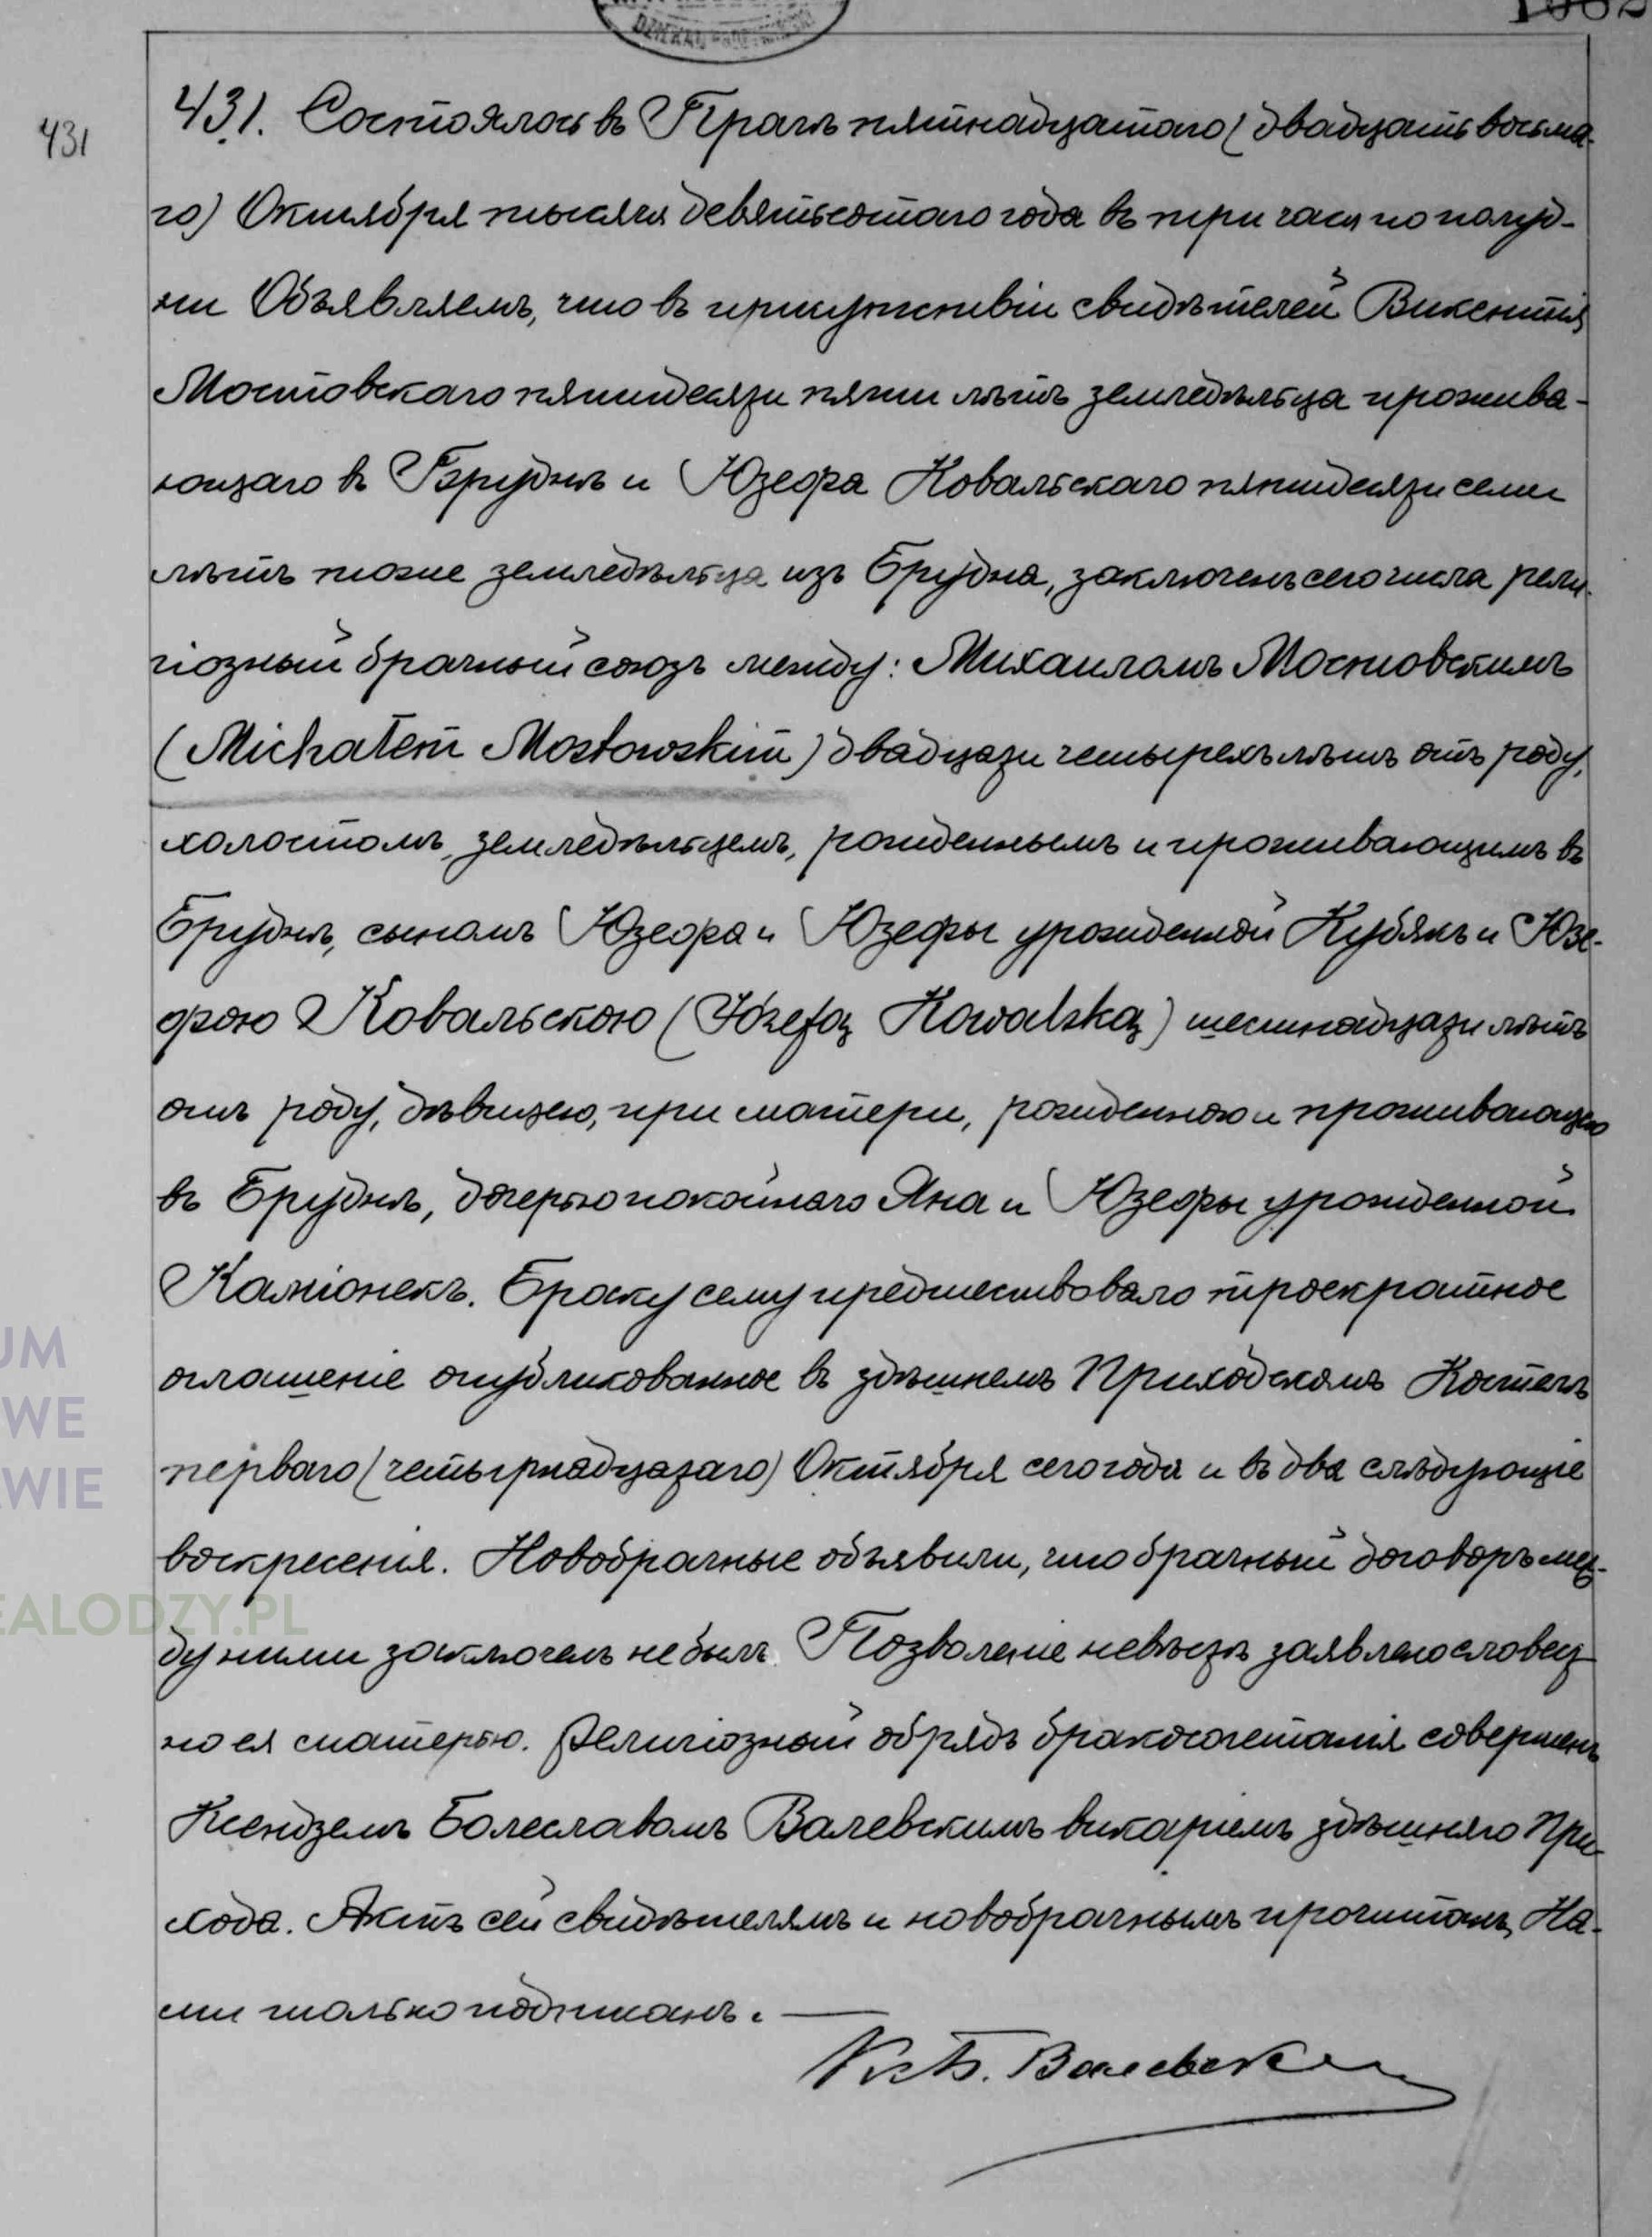 431
431. Состоялось въ Прагѣ пятнадцатаго (двадцать восьма-
го) Октября тысяча девятьсотаго года въ три часа по полуд-
ни Объявляемъ, что въ присутствіи свидѣтелей Викентія
Мостовскаго пятидесяти пяти лѣтъ земледѣльца прожива-
ющаго въ Бруднѣ и Юзефа Ковальскаго пятидесяти семи
лѣтъ тоже земледѣльца изъ Брудна, заключенъ сего числа рели-
гіозный брачный союзъ между: Михаиломъ Мостовскимъ
(Michałem Mostowskim) двадцати четырехъ лѣтъ отъ роду,
холостомъ, земледѣльцемъ, рожденнымъ и проживающимъ въ
Бруднѣ, сыномъ Юзефа и Юзефы урожденной Кубякъ и Юзе-
фою Ковальскою (Józefą Kowalską) шестнадцати лѣтъ
отъ роду, дѣвицею, при матери, рожденною и проживающею
въ Бруднѣ, дочерью покойнаго Яна и Юзефы урожденной
Камionекъ. Браку сему предшествовало троекратное
оглашеніе опубликованное въ здѣшнемъ Приходскомъ Костелѣ
перваго (четырнадцатаго) Октября сего года и въ два слѣдующіе
воскресенія. Новобрачные объявили, что брачный договоръ меж-
ду ними заключенъ не былъ. Позволеніе невѣстѣ заявлено словес-
но ея матерью. Религіозный обрядъ бракосочетанія совершенъ
Ксендземъ Болеславомъ Валевскимъ викаріемъ здѣшняго При-
хода. Актъ сей свидѣтелямъ и новобрачнымъ прочитанъ, На-
ми только подписанъ. —
Кс. Б. Валевски
UM
WE
WIE
EALODZY.PL